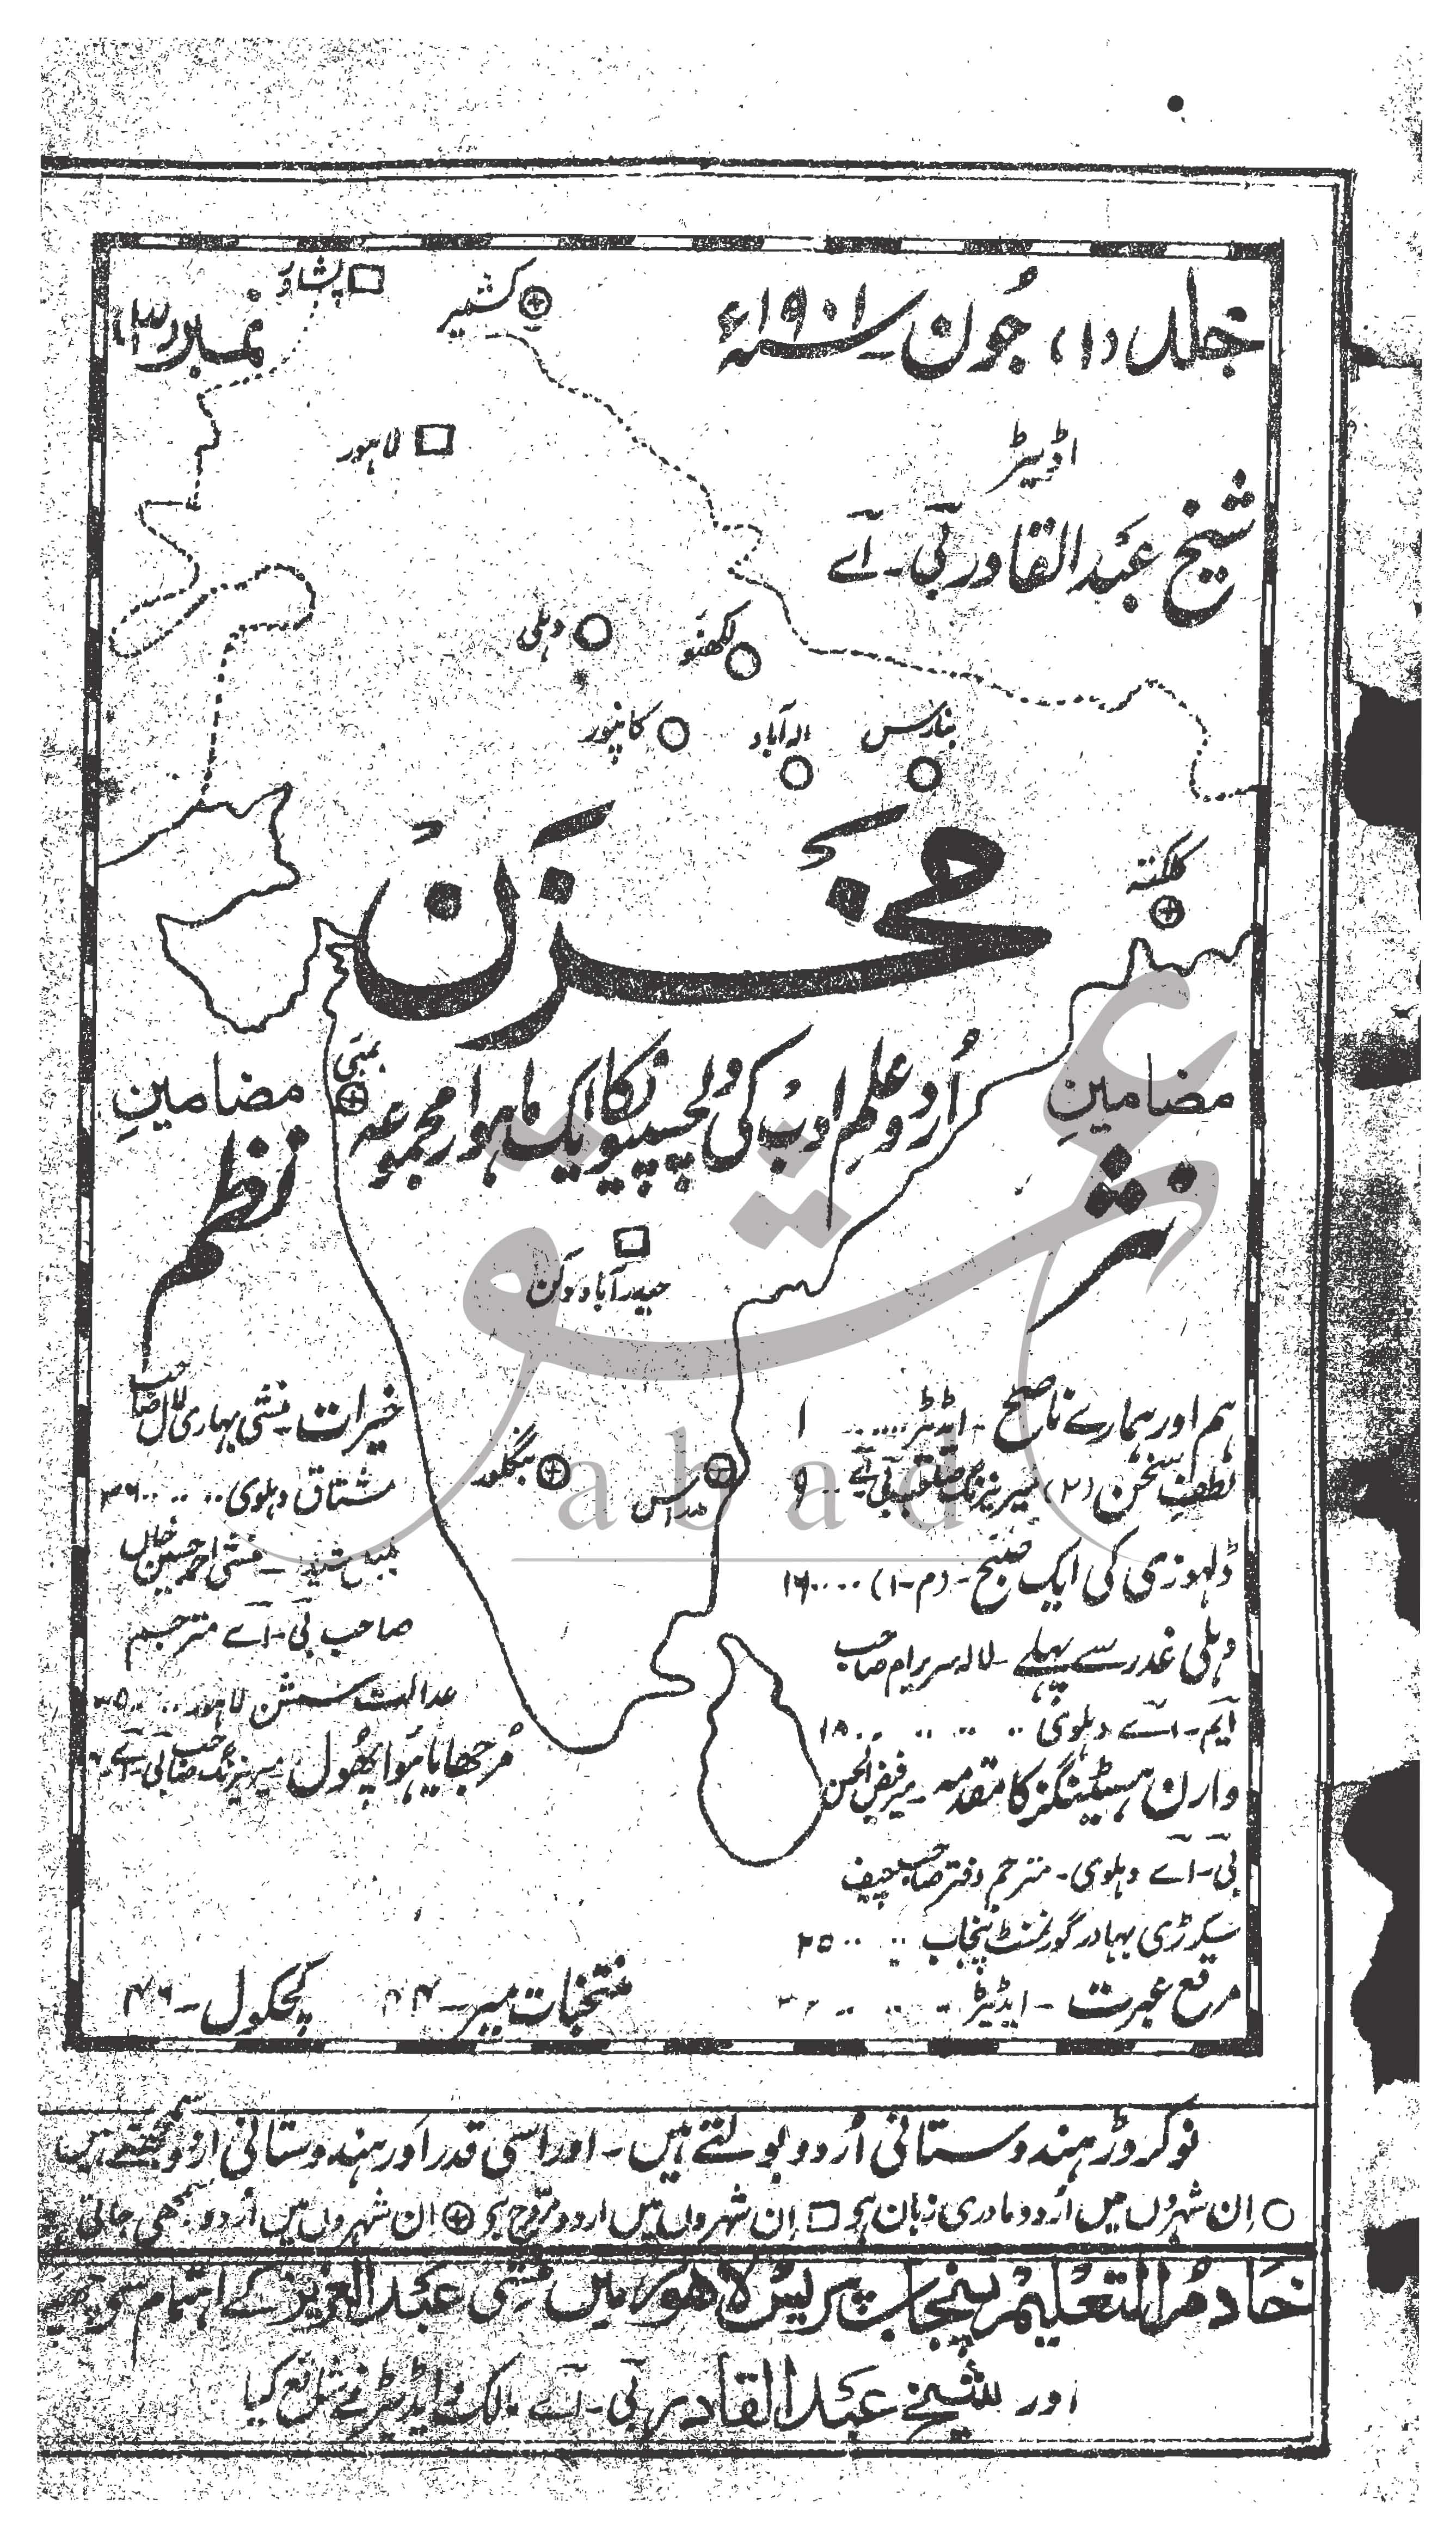 جلد (۱) جُون سنہ ۱۹۰۱ء
نمبر (۳)
پشاور
کشمیر
اڈیٹر
لاہور
شیخ عبدالقادر بی-اے
دہلی
لکھنو
کانپور
الہ آباد
بنارس
مخزن
کلکتہ
اُردو علم ادب کی دلچسپیوں کا ایک ماہوار مجموعہ
بمبئی
مضامینِ
نثر
مضامینِ
نظم
حیدرآباد دکن
بنگلور
مدراس
ہم اور ہمارے ناصح - اڈیٹر ..... ۱
لطفِ سخن (۲) میر نیرنگ صاحب بی اے .. ۹
ڈلہوزی کی ایک صبح - (م-ا) .... ۱۶
دہلی غدر سے پہلے - لالہ سریرام صاحب
ایم-اے دہلوی .. .. .. .. ۱۸
وارن ہسٹینگز کا مقدمہ - میر فیض الحسن
بی-اے دہلوی - مترجم دفتر صاحب چیف
سکرٹری بہادر گورنمنٹ پنجاب .. .. ۲۵
مرقع عبرت - ایڈیٹر .. .. ..
خیرات - منشی بہاری لال صاحب
مشتاق دہلوی .. .. ..
منشی احمد حسین خاں
صاحب بی-اے مترجم
عدالت سشن لاہور .. ..
مُرجھایا ہوا پھُول - میر نیرنگ صاحب بی-اے
منتخبات میر - ۴۴
کچکول - ۴۶
نو کروڑ ہندوستانی اُردو بولتے ہیں - اور اسی قدر اور ہندوستانی اردو سمجھتے ہیں
اِن شہروں میں اُردو مادری زبان ہی اِن شہروں میں اردو مروّج ہی اِن شہروں میں اُردو سمجھی جاتی
خادم التعلیم پنجاب پریس لاہور میں منشی عبدالعزیز کے اہتمام سے
اور شیخ عبدالقادر بی-اے مالک و ایڈیٹر نے شائع کیا
عشق
abad